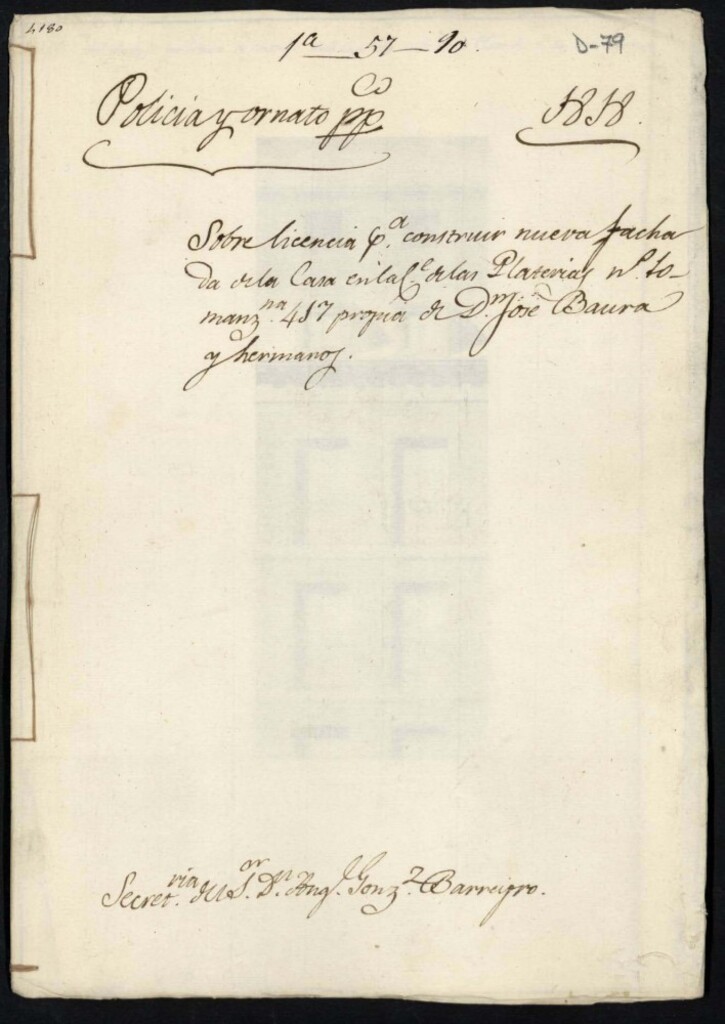 4180
1ª 57-90.
D-79
Policia y ornato pp.co 1818.
Sobre licencia p.ª construir nueva facha
da de la Casa en la C.e de las Platerias n.º 10-
manz.na 417 propia de D.n José Baura
y hermanos.
Secret.ria del S.or D.n Ang.l Gonz.z Barreiro.